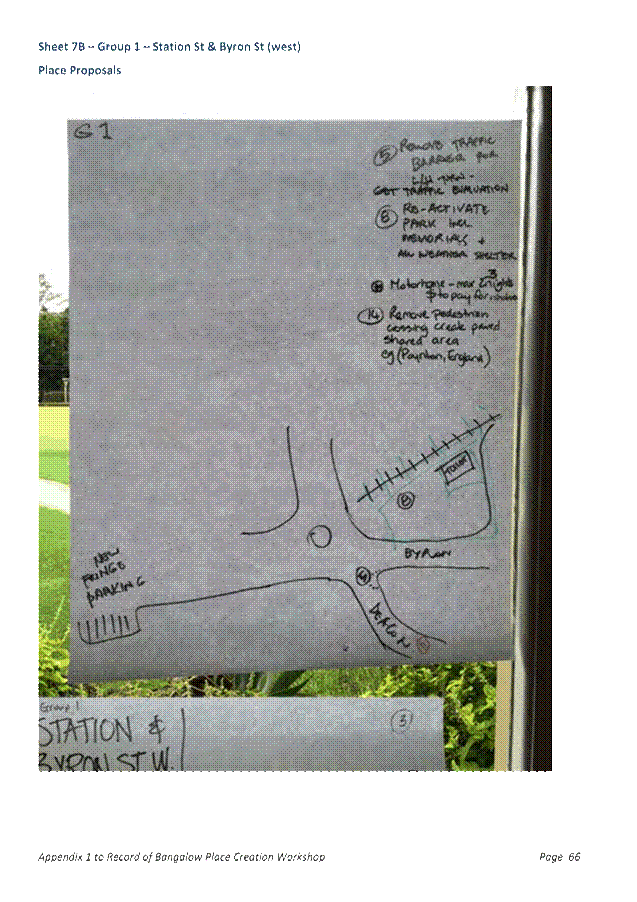 Sheet 7B – Group 1 – Station St & Byron St (west)
Place Proposals
G1
5 Remove TRAFFIC
BARRIER FOR
TURN -
GET TRAFFIC EVALUATION
8 RE-ACTIVATE
PARK INCL
MEMORIALS +
ALL WEATHER SHELTER
Motorhome - max 3 nights
$ to pay for
14 Remove pedestrian
crossing create paved
shared area
eg (Poynton, England)
TOILET
8
BYRON
NEW
FRINGE
PARKING
DEACON
Group 1
STATION &
BYRON ST W.
3
Appendix 1 to Record of Bangalow Place Creation Workshop
Page 66